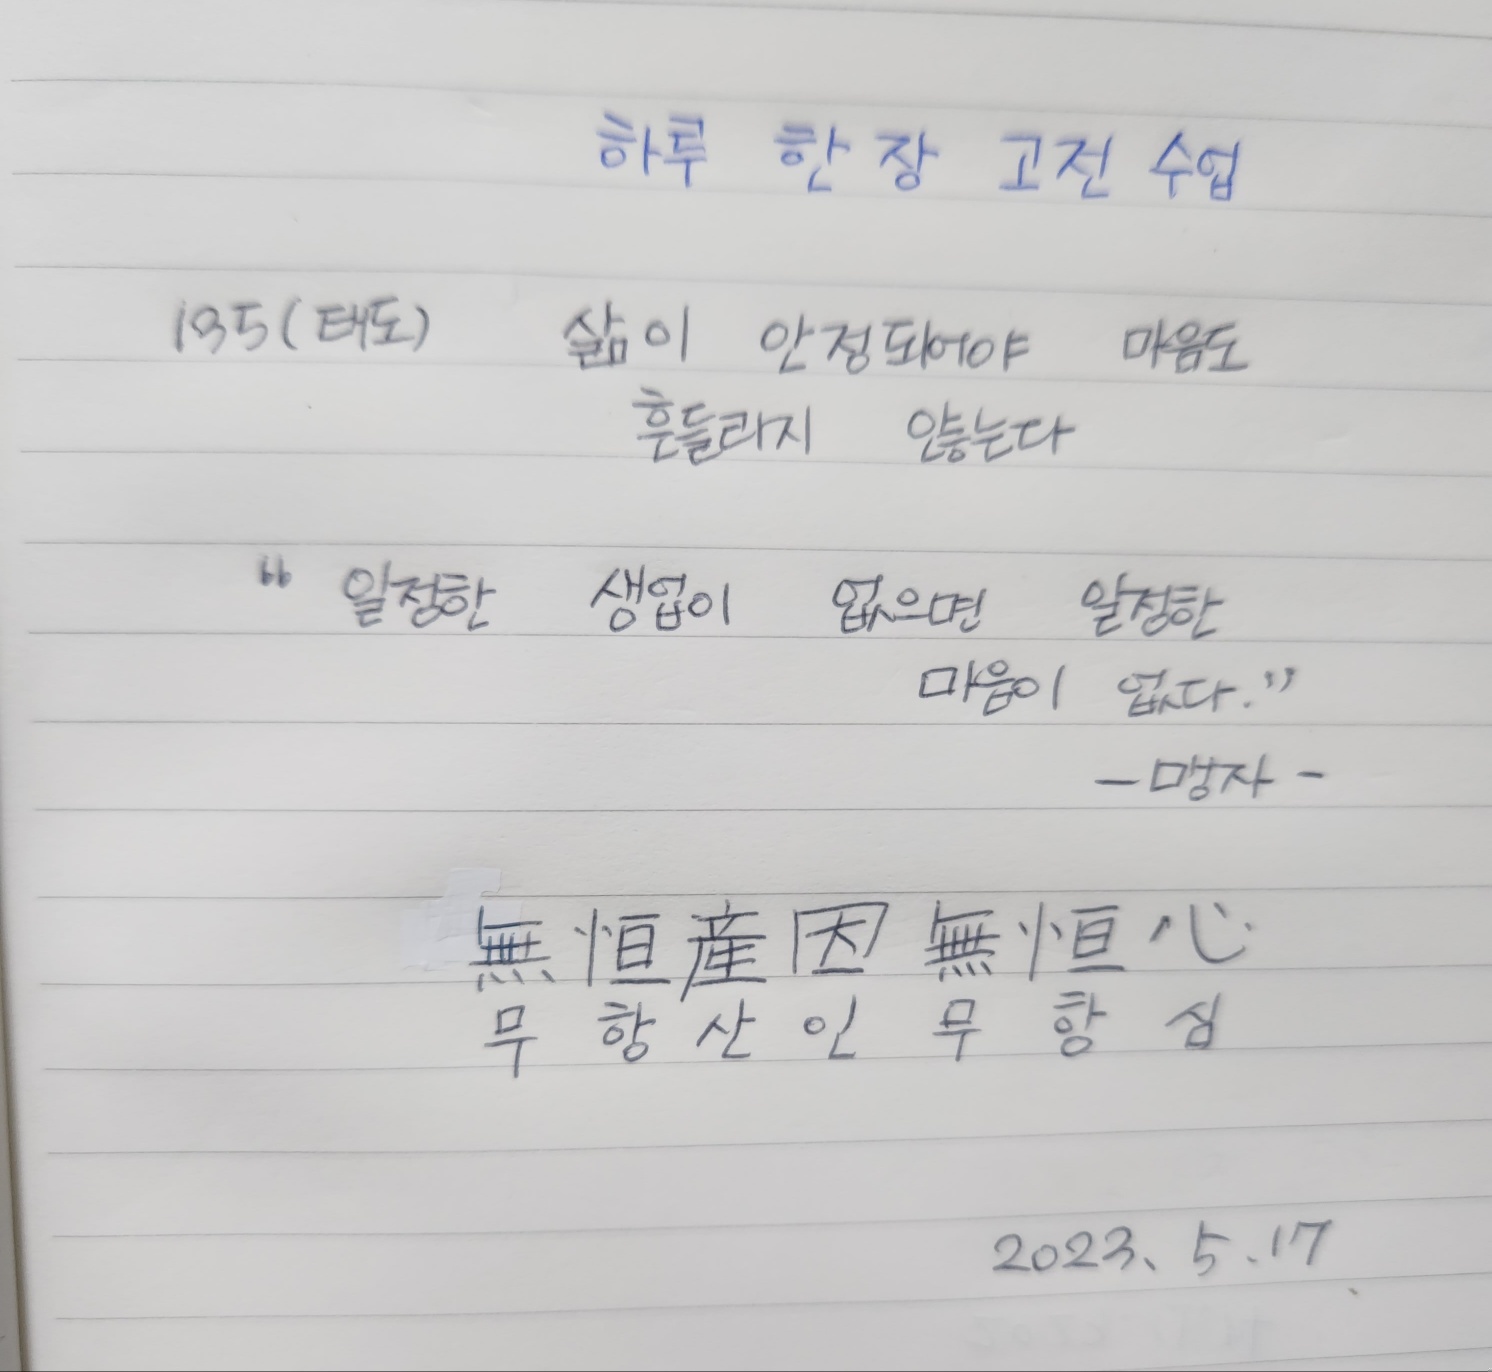 하루 한 장 고전 수업
135(태도) 삶이 안정되어야 마음도
흔들리지 않는다
“일정한 생업이 없으면 일정한
마음이 없다.”
-맹자-
無恒産因無恒心
무항산인무항심
2023. 5.17